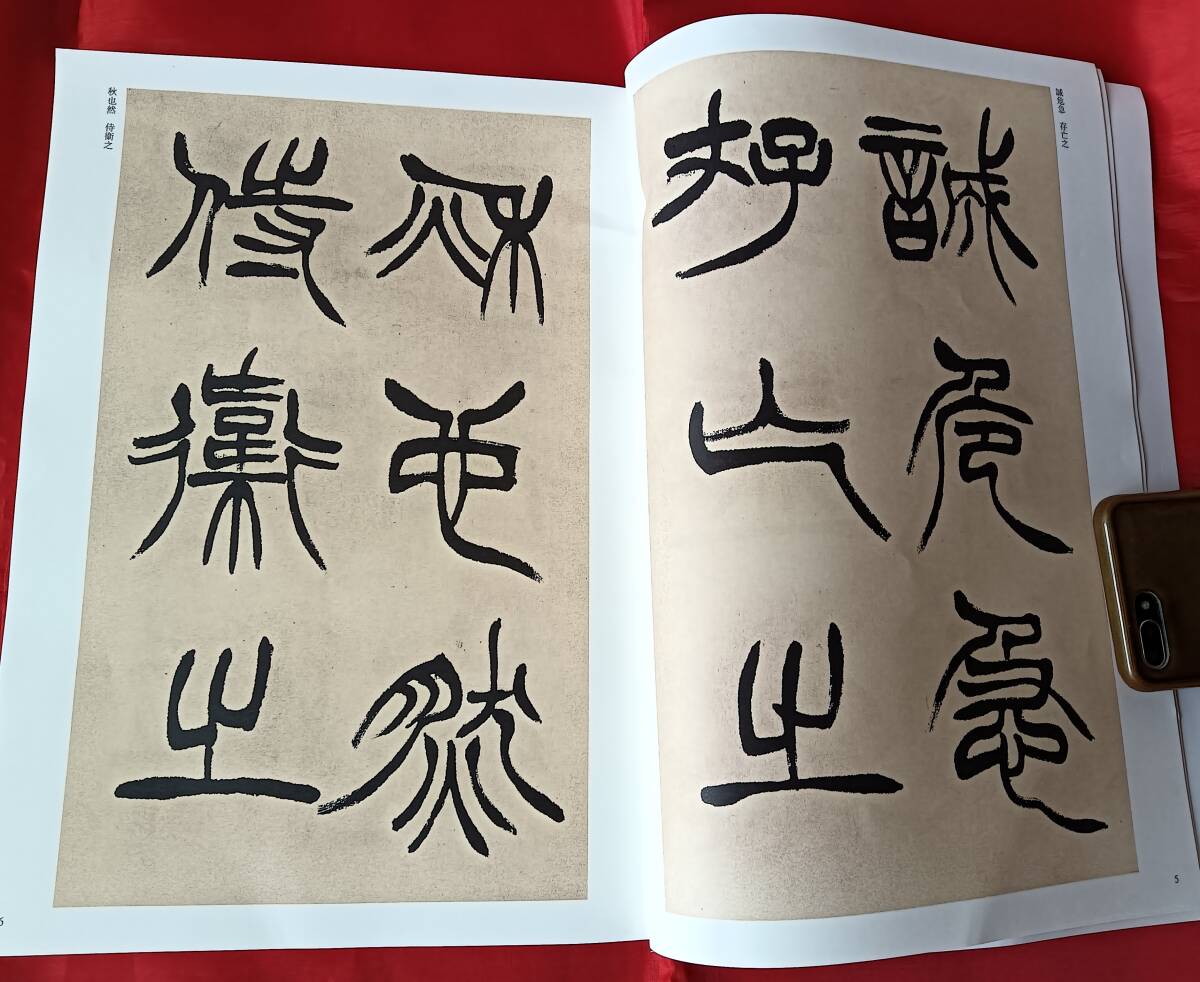 誠危急　存亡之
誠危急
存亡之
5
秋也然　侍衛之
秋也然
侍衛之
6